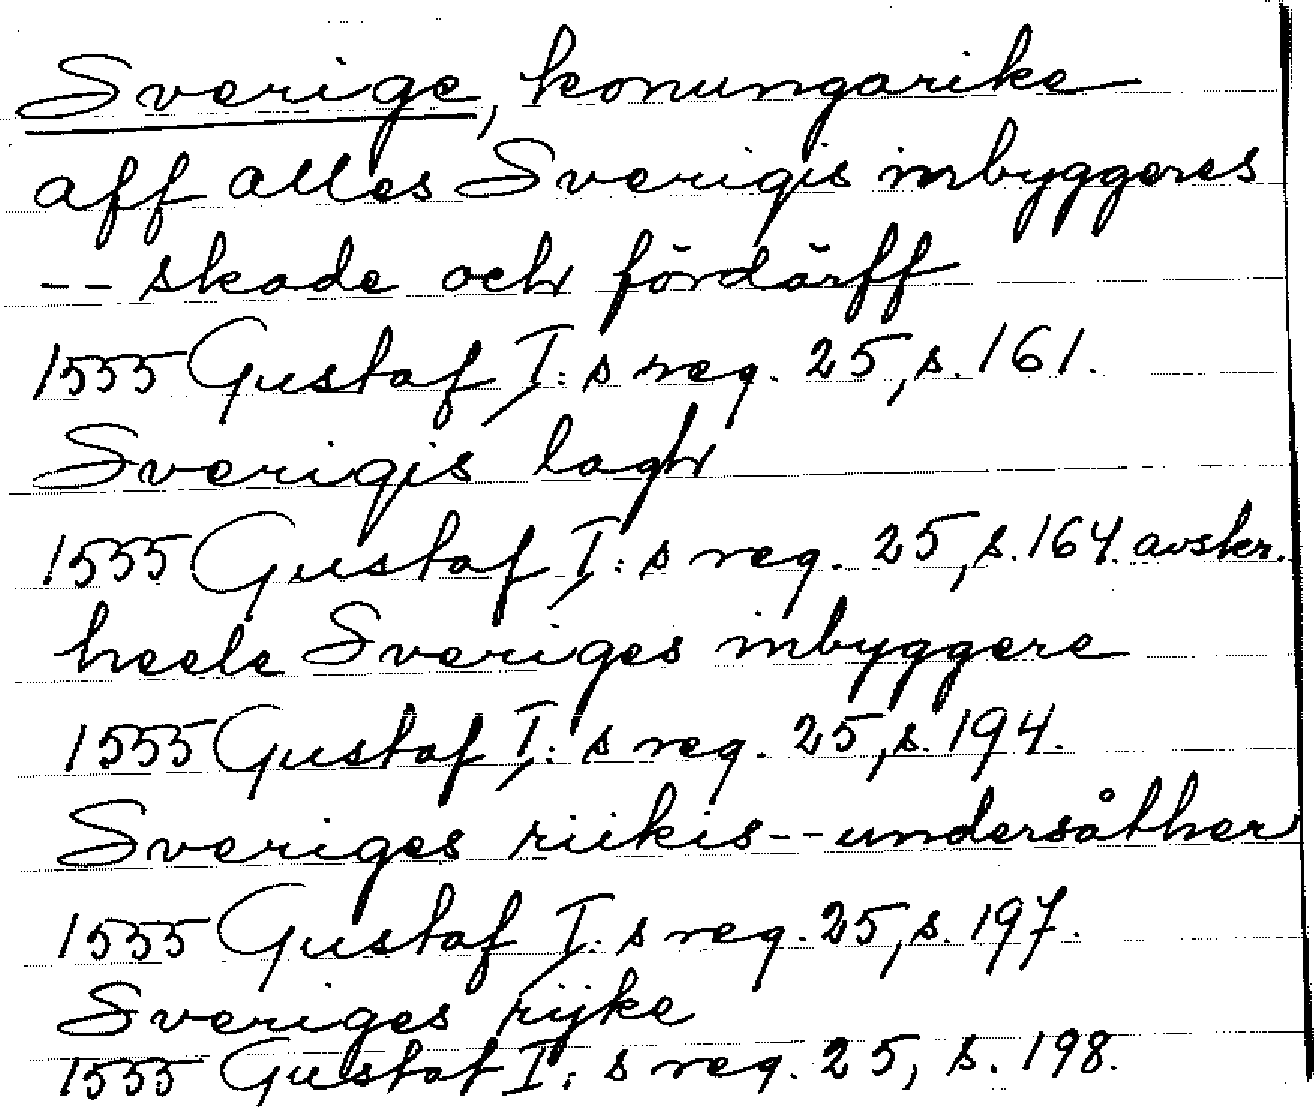 Sverige, konungarike
aff alles Sverigis inbyggeres
-- skade och fördärff
1555 Gustaf I:s reg. 25, s. 161.
Sverigis lagh
1555 Gustaf I:s reg. 25, s. 164. avskr.
heele Sveriges inbyggere
1555 Gustaf I:s reg. 25, s. 194.
Sveriges riikis -- undersåther
1555 Gustaf I:s reg. 25, s. 197.
Sveriges rijke
1555 Gustaf I:s reg. 25, s. 198.